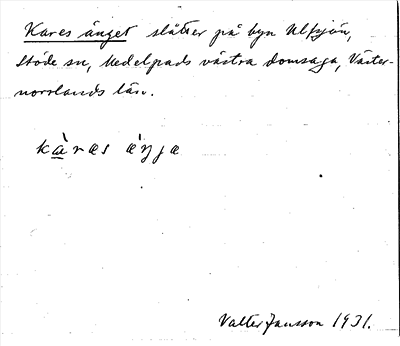 Kares änget slåtter på byn Ulfsjön,
Stöde sn, Medelpads västra domsaga, Väster-
norrlands län.
kàras áŋjæ
Valter Jansson 1931.